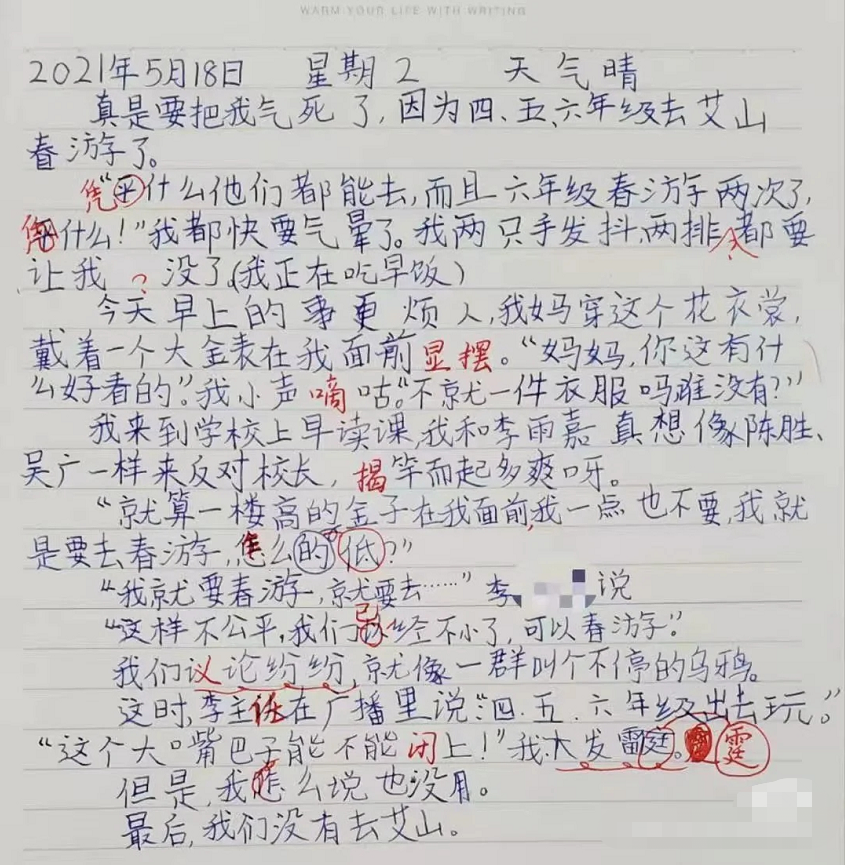 WARM YOUR LIFE WITH WRITING
2021年5月18日 星期2 天气晴
真是要把我气死了,因为四、五、六年级去艾山
春游了。
凭"平什么他们都能去,而且六年级春游两次了,
凭什么!"我都快要气晕了。我两只手发抖,两排都要
让我?没了。(我正在吃早饭)
今天早上的事更烦人,我妈穿这个花衣裳,
戴着一个大金表在我面前显摆。"妈妈,你这有什
么好看的"。我小声嘀咕。"不就一件衣服吗谁没有?"
我来到学校上早读课,我和李雨嘉真想像陈胜、
吴广一样来反对校长,揭竿而起多爽呀。
"就算一楼高的金子在我面前,我一点也不要,我就
是要去春游,怎么的低?"
"我就要春游,就要去……"李 说
"这样不公平,我们已经不小了,可以春游。"
我们议论纷纷,就像一群叫个不停的乌鸦。
这时,李主任在广播里说:"四、五、六年级出去玩。"
"这个大口嘴巴子能不能闭上!"我大发雷廷。霆
但是,我怎么说也没用。
最后,我们没有去艾山。